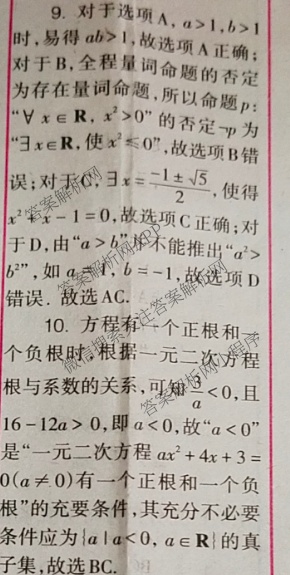 9. 对于选项 A, a>1,b>1
时,易得 ab>1,故选项 A 正确;
对于 B,全程量词命题的否定
为存在量词命题,所以命题 p:
“∀ x∈R, x²>0” 的否定¬p 为
“∃x∈R,使 x²≤0”,故选项 B 错
误;对于 C, ∃x=(-1±√5)/2, 使得
x²+x-1=0,故选项 C 正确;对
于 D,由“a>b”并不能推出“a²>
b²”, 如 a=1, b=-1,故选项 D
错误. 故选 AC.
10. 方程有一个正根和一
个负根时,根据一元二次方程
根与系数的关系,可知 3/a<0,且
16-12a>0,即 a<0,故“a<0”
是“一元二次方程 ax²+4x+3=
0(a≠0)有一个正根和一个负
根”的充要条件,其充分不必要
条件应为{a|a<0, a∈R}的真
子集,故选 BC.
答案解析网APP
微信搜索关注答案解析网小程序
答案解析网